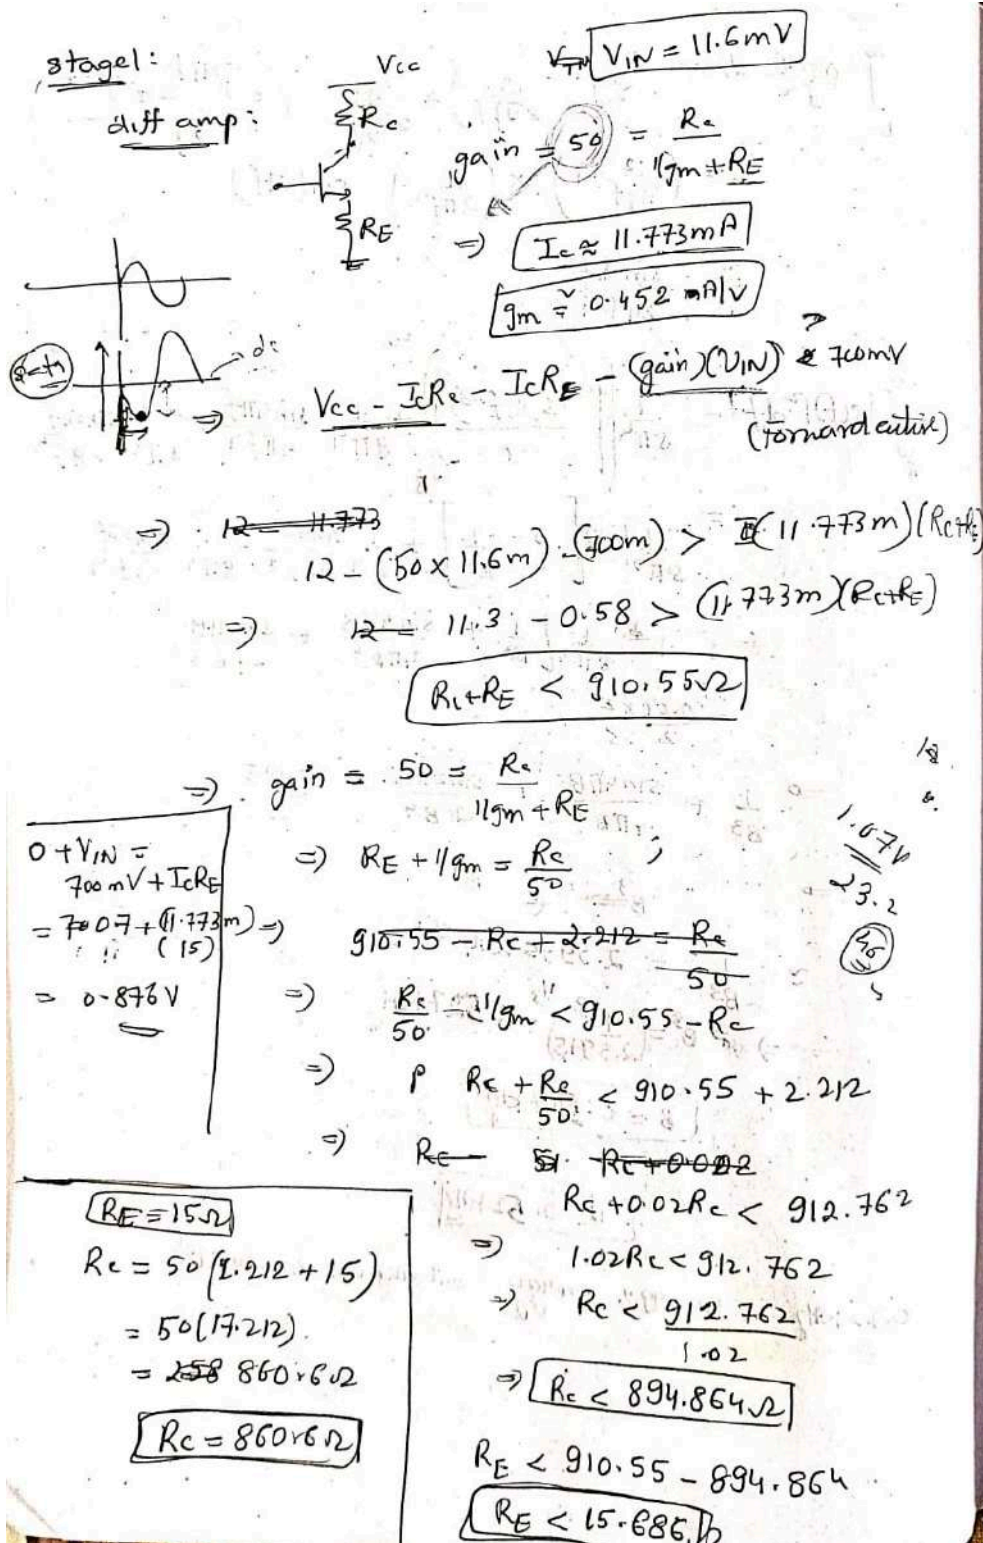 stage1:
diff amp:
Vcc
Rc
RE
VIN = 11.6mV
gain = 50 = Rc / 1/gm + RE
=> Ic ≈ 11.773mA
gm ≈ 0.452 A/V
=> Vcc - IcRc - IcRE - (gain)(VIN) > 700mV
(forward active)
=> 12 - 11.773
12 - (50 x 11.6m) - (700m) > (11.773m)(Rc+RE)
=> 12 - 11.3 - 0.58 > (11.773m)(Rc+RE)
Rc+RE < 910.55Ω
=> gain = 50 = Rc / 1/gm + RE
=> RE + 1/gm = Rc/50
=> 910.55 - Rc + 2.212 = Rc/50
=> Rc/50 - 1/gm < 910.55 - Rc
=> Rc + Rc/50 < 910.55 + 2.212
=>
Rc + 0.02Rc < 912.762
=> 1.02Rc < 912.762
=> Rc < 912.762 / 1.02
=> Rc < 894.864Ω
RE < 910.55 - 894.864
RE < 15.686
0 + VIN =
700mV + IcRE
= 0.7 + (11.773m)
(15)
= 0.876V
1.07V
23.2
46
RE = 15Ω
Rc = 50(2.212 + 15)
= 50(17.212)
= 860.6Ω
Rc = 860.6Ω